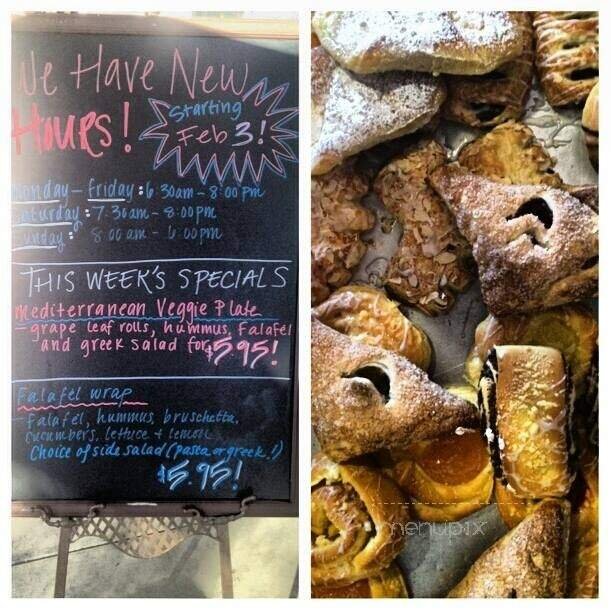 We Have New
Hours!
Starting
Feb 3!
Monday - friday: 6:30am - 8:00pm
Saturday: 7:30am - 8:00pm
Sunday: 8:00am - 6:00pm
THIS WEEK'S SPECIALS
Mediterranean Veggie Plate
- grape leaf rolls, hummus, Falafel
and greek salad for $5.95!
Falafel wrap
- falafel, hummus, bruschetta,
cucumbers, lettuce + lemon
Choice of side salad (pasta or greek!)
$5.95!
menupix